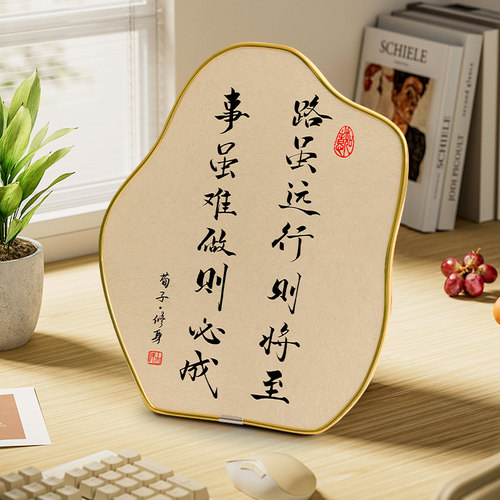 路虽远行则将至
事虽难做则必成
荀子·修身
SCHIELE
SCHIELE
JODI PICOULT